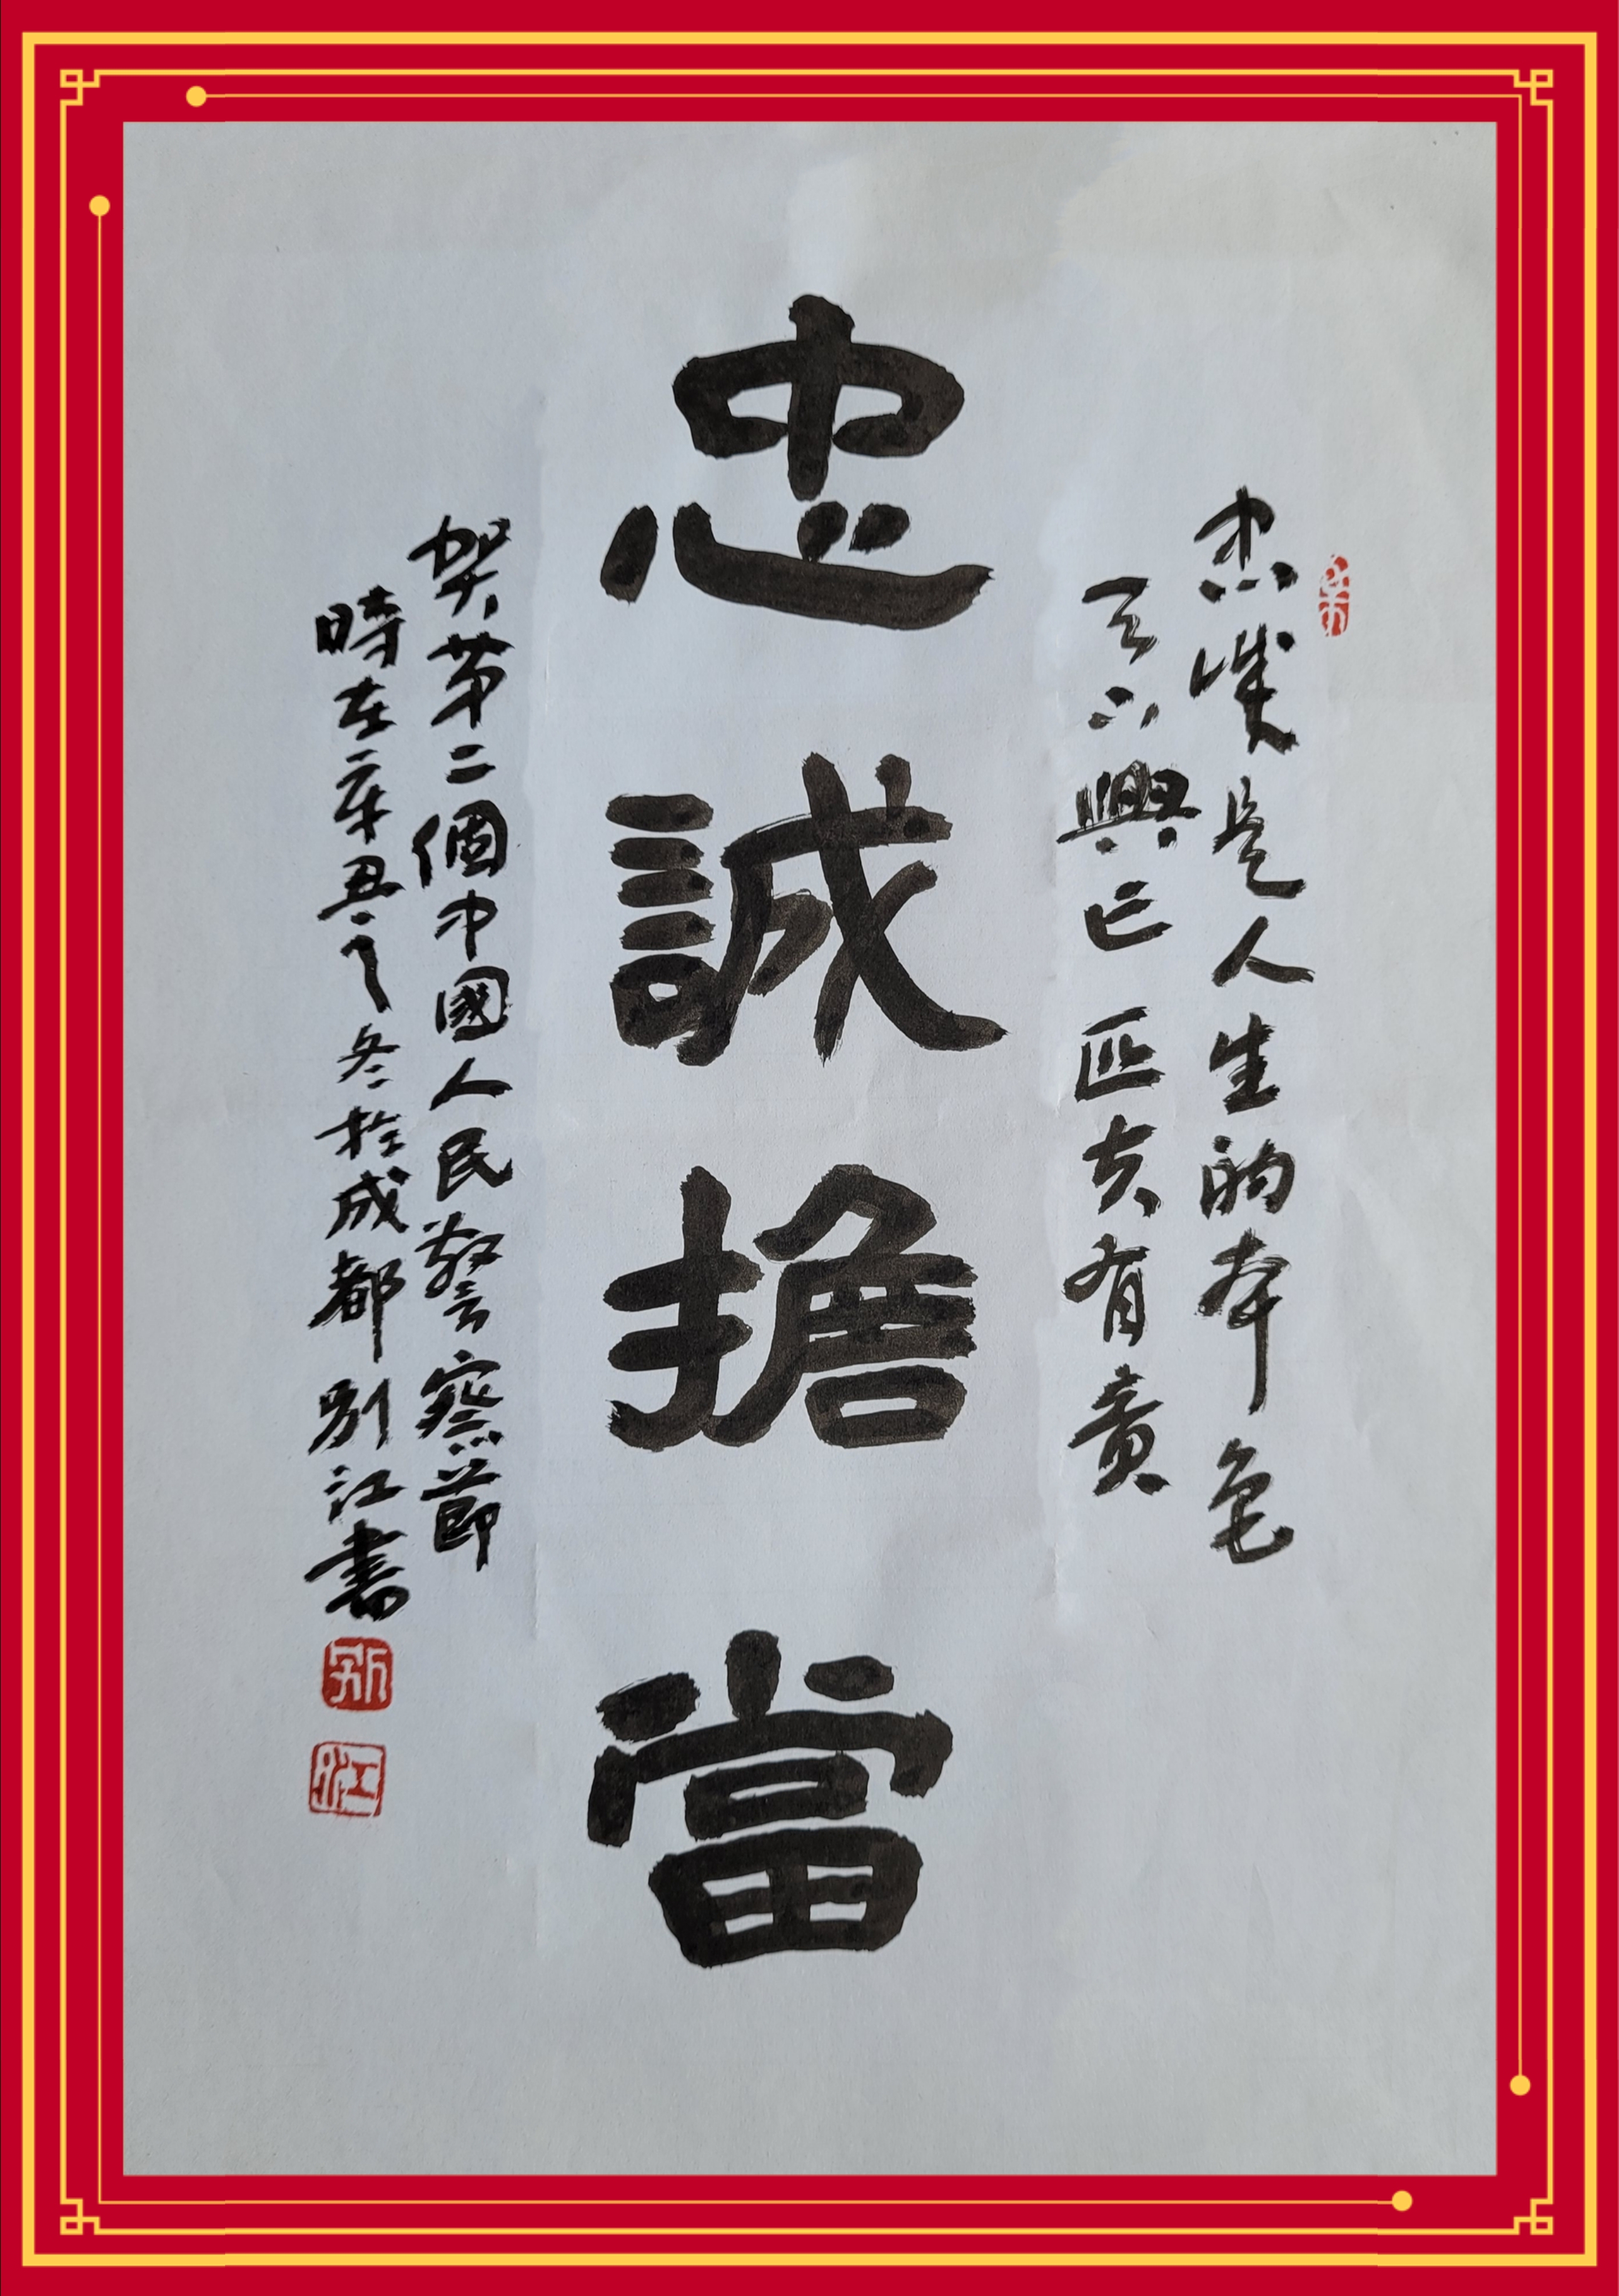 忠誠是人生的本色
天下興亡匹夫有責
忠誠擔當
賀第二個中國人民警察節
時在辛丑之冬於成都別江書
別
江